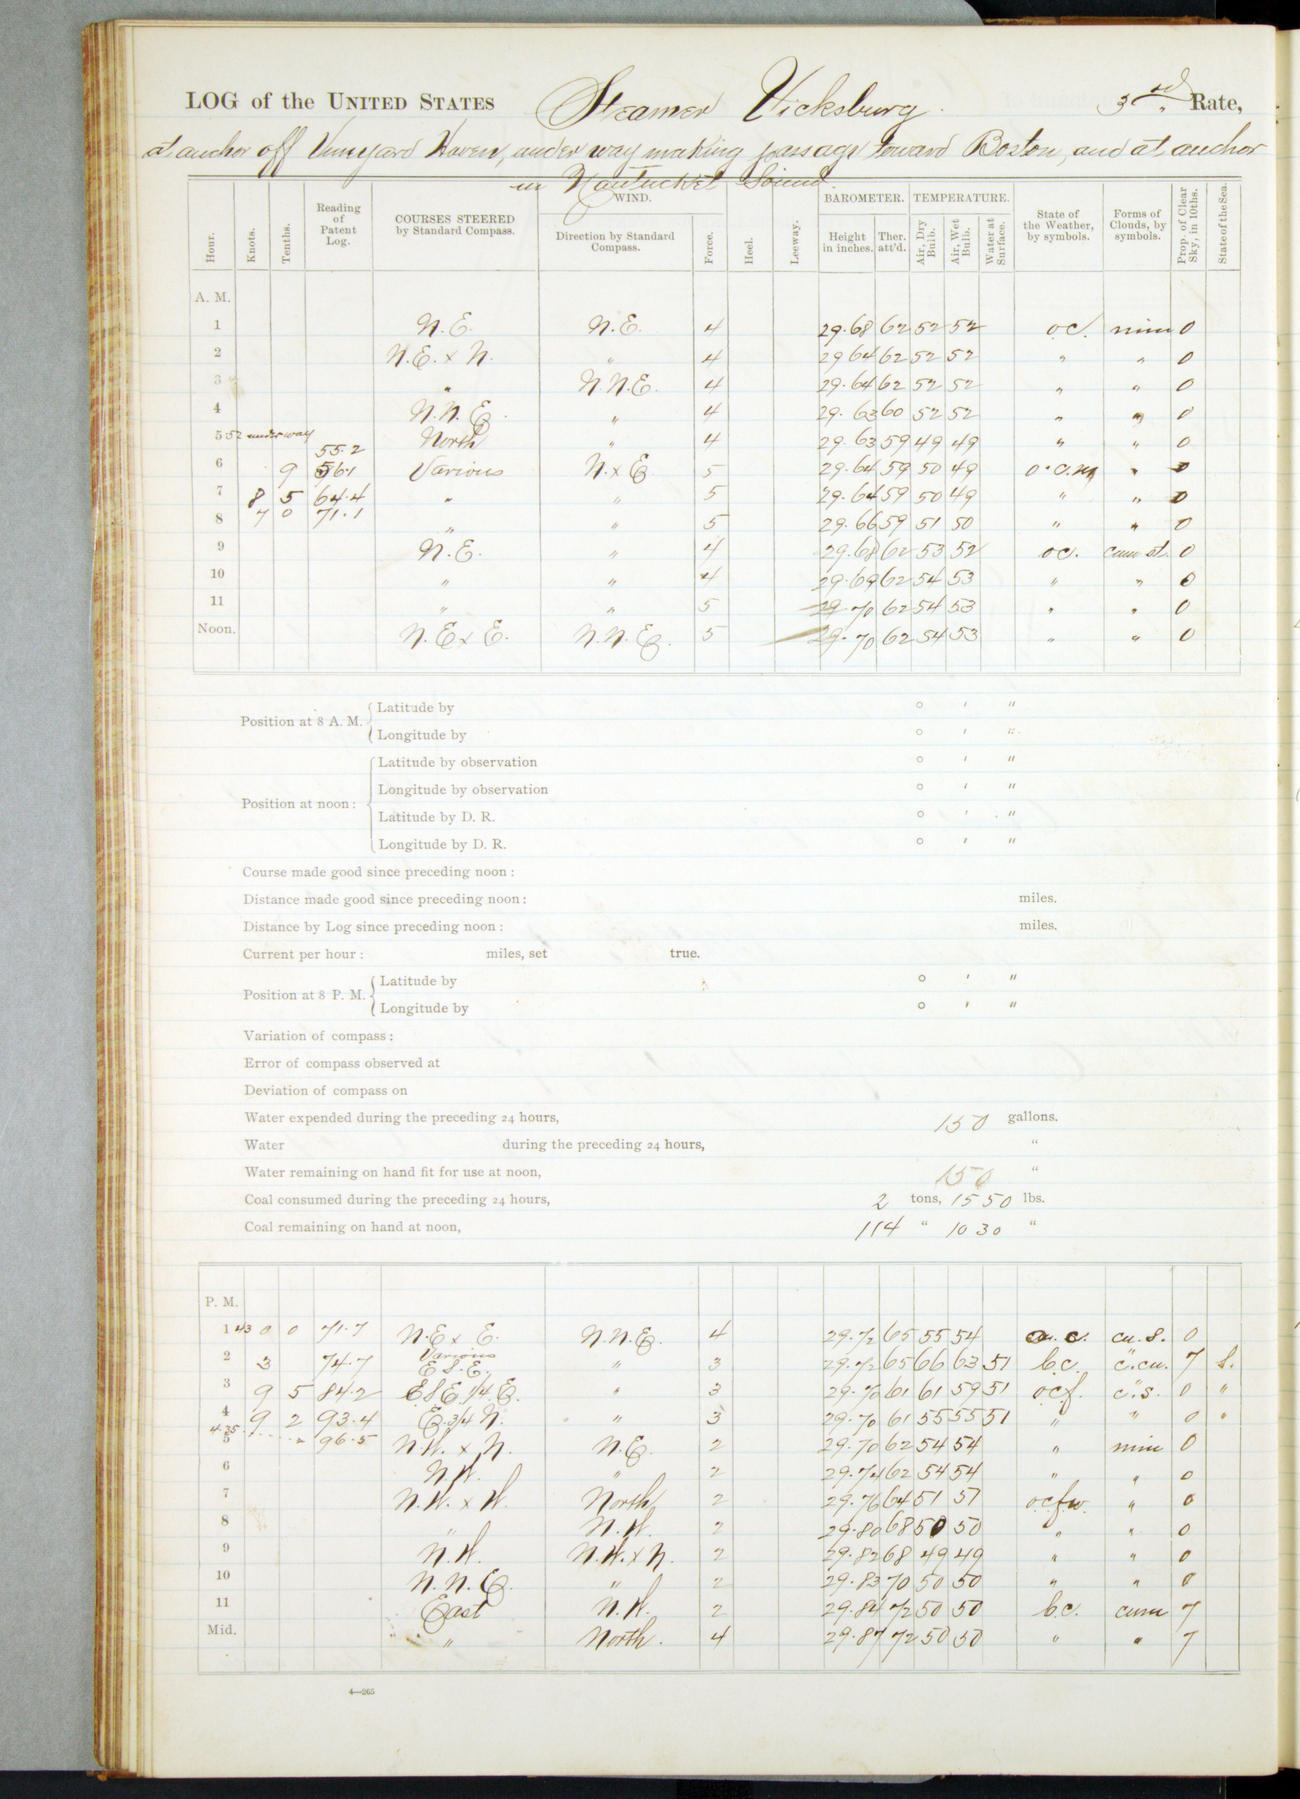 LOG of the UNITED STATES Steamer Vicksburg. 3rd Rate,
at anchor off Vineyard Haven, under way making passage toward Boston, and at anchor
in Nantucket Sound.
Hour. Knots. Tenths. Reading of Patent Log. COURSES STEERED by Standard Compass. WIND. Direction by Standard Compass. Force. Heel. Leeway. BAROMETER. Height in inches. Ther. att'd. TEMPERATURE. Air, Dry Bulb. Air, Wet Bulb. Water at Surface. State of the Weather, by symbols. Forms of Clouds, by symbols. Prop. of Clear Sky, in 10ths. State of the Sea.
A. M.
1 N.E. N.E. 4 29.68 62 52 52 o.c. nim 0
2 N.E. x N. " 4 29 64 62 52 52 " " 0
3 " N.N.E. 4 29.64 62 52 52 " " 0
4 N.N.E. " 4 29.63 60 52 52 " " 0
5 52 under way 55.2 North " 4 29.63 59 49 49 " " 0
6 9 56.1 Various N. x E. 5 29.64 59 50 49 o.c.m " 0
7 8 5 64.4 " " 5 29.64 59 50 49 " " 0
8 7 0 71.1 " " 5 29.66 59 51 50 " " 0
9 N.E. " 4 29.68 62 53 52 oc. cum st. 0
10 " " 4 29.69 62 54 53 " " 0
11 " " 5 29.70 62 54 53 " " 0
Noon. N.E x E. N.N.E. 5 29.70 62 54 53 " " 0
Position at 8 A. M. Latitude by ° ' "
Longitude by ° ' "
Position at noon: Latitude by observation ° ' "
Longitude by observation ° ' "
Latitude by D. R. ° ' "
Longitude by D. R. ° ' "
Course made good since preceding noon:
Distance made good since preceding noon: miles.
Distance by Log since preceding noon: miles.
Current per hour: miles, set true.
Position at 8 P. M. Latitude by ° ' "
Longitude by ° ' "
Variation of compass:
Error of compass observed at
Deviation of compass on
Water expended during the preceding 24 hours, 150 gallons.
Water during the preceding 24 hours, "
Water remaining on hand fit for use at noon, 150 "
Coal consumed during the preceding 24 hours, 2 tons, 1550 lbs.
Coal remaining on hand at noon, 114 " 1030 "
P. M.
1 43 0 0 71.7 N.E x E. N.N.E. 4 29.72 65 55 54 c. cu.s. 0
2 3 74.7 Various E.S.E. " 3 29.72 65 66 63 51 b.c. c.cu. 7 S.
3 9 5 84.2 ESE 1/4 E. " 3 29.70 61 61 59 51 o.c.f. c.s. 0 "
4 9 2 93.4 E. 3/4 N. " 3 29.70 61 55 55 51 " " 0 "
4.35 5 " 96.5 N.W. x N. N.E. 2 29.70 62 54 54 " nim 0
6 N.W. " 2 29.74 62 54 54 " " 0
7 N.W. x W. North 2 29.76 64 51 51 o.c.f.w. " 0
8 " N.W. 2 29.80 68 50 50 " " 0
9 N.W. N.W. x N. 2 29.82 68 49 49 " " 0
10 N.N.E. " 2 29.83 70 50 50 " " 0
11 East N.W. 2 29.84 72 50 50 b.c. cum 7
Mid. " North. 4 29.87 72 50 50 " " 7
4—265